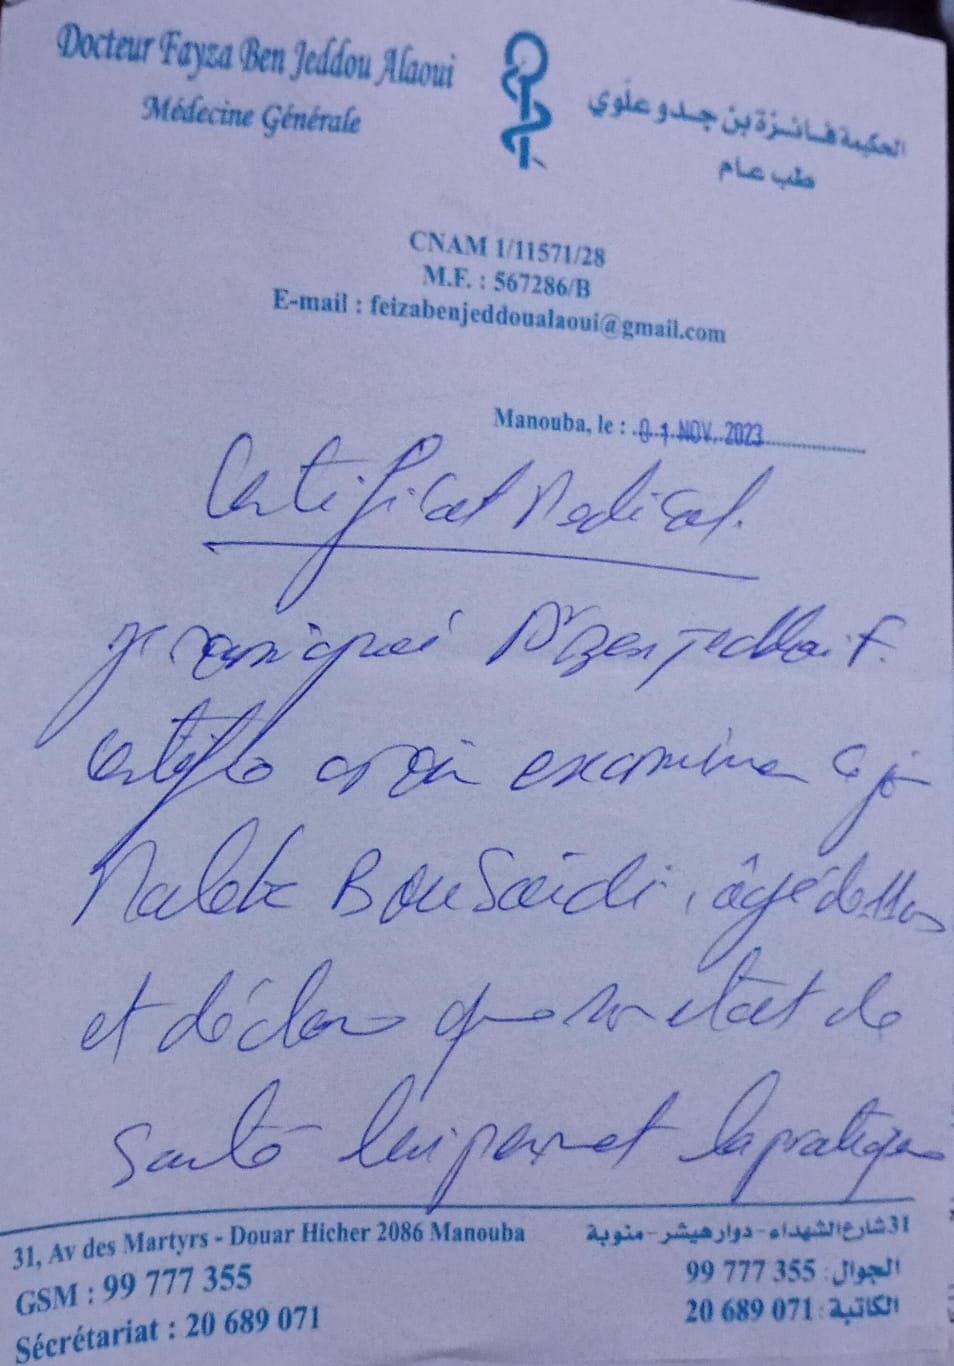 Docteur Fayza Ben Jeddou Alaoui
Médecine Générale
الحكيمة فائزة بن جدو علوي
طب عام
CNAM 1/11571/28
M.F. : 567286/B
E-mail : feizabenjeddoualaoui@gmail.com
Manouba, le : 01 NOV. 2023
Certificat Medical.
je soussigné Dr Ben Jeddou F.
certifie avoir examiner ce jr
Malek BouSaidi, âgé de 11 ans
et déclare que son etat de
santé lui permet la pratique
31, Av des Martyrs - Douar Hicher 2086 Manouba
GSM : 99 777 355
Sécrétariat : 20 689 071
31 شارع الشهداء - دوار هيشر - منوبة
الجوال : 355 777 99
الكاتبة : 071 689 20